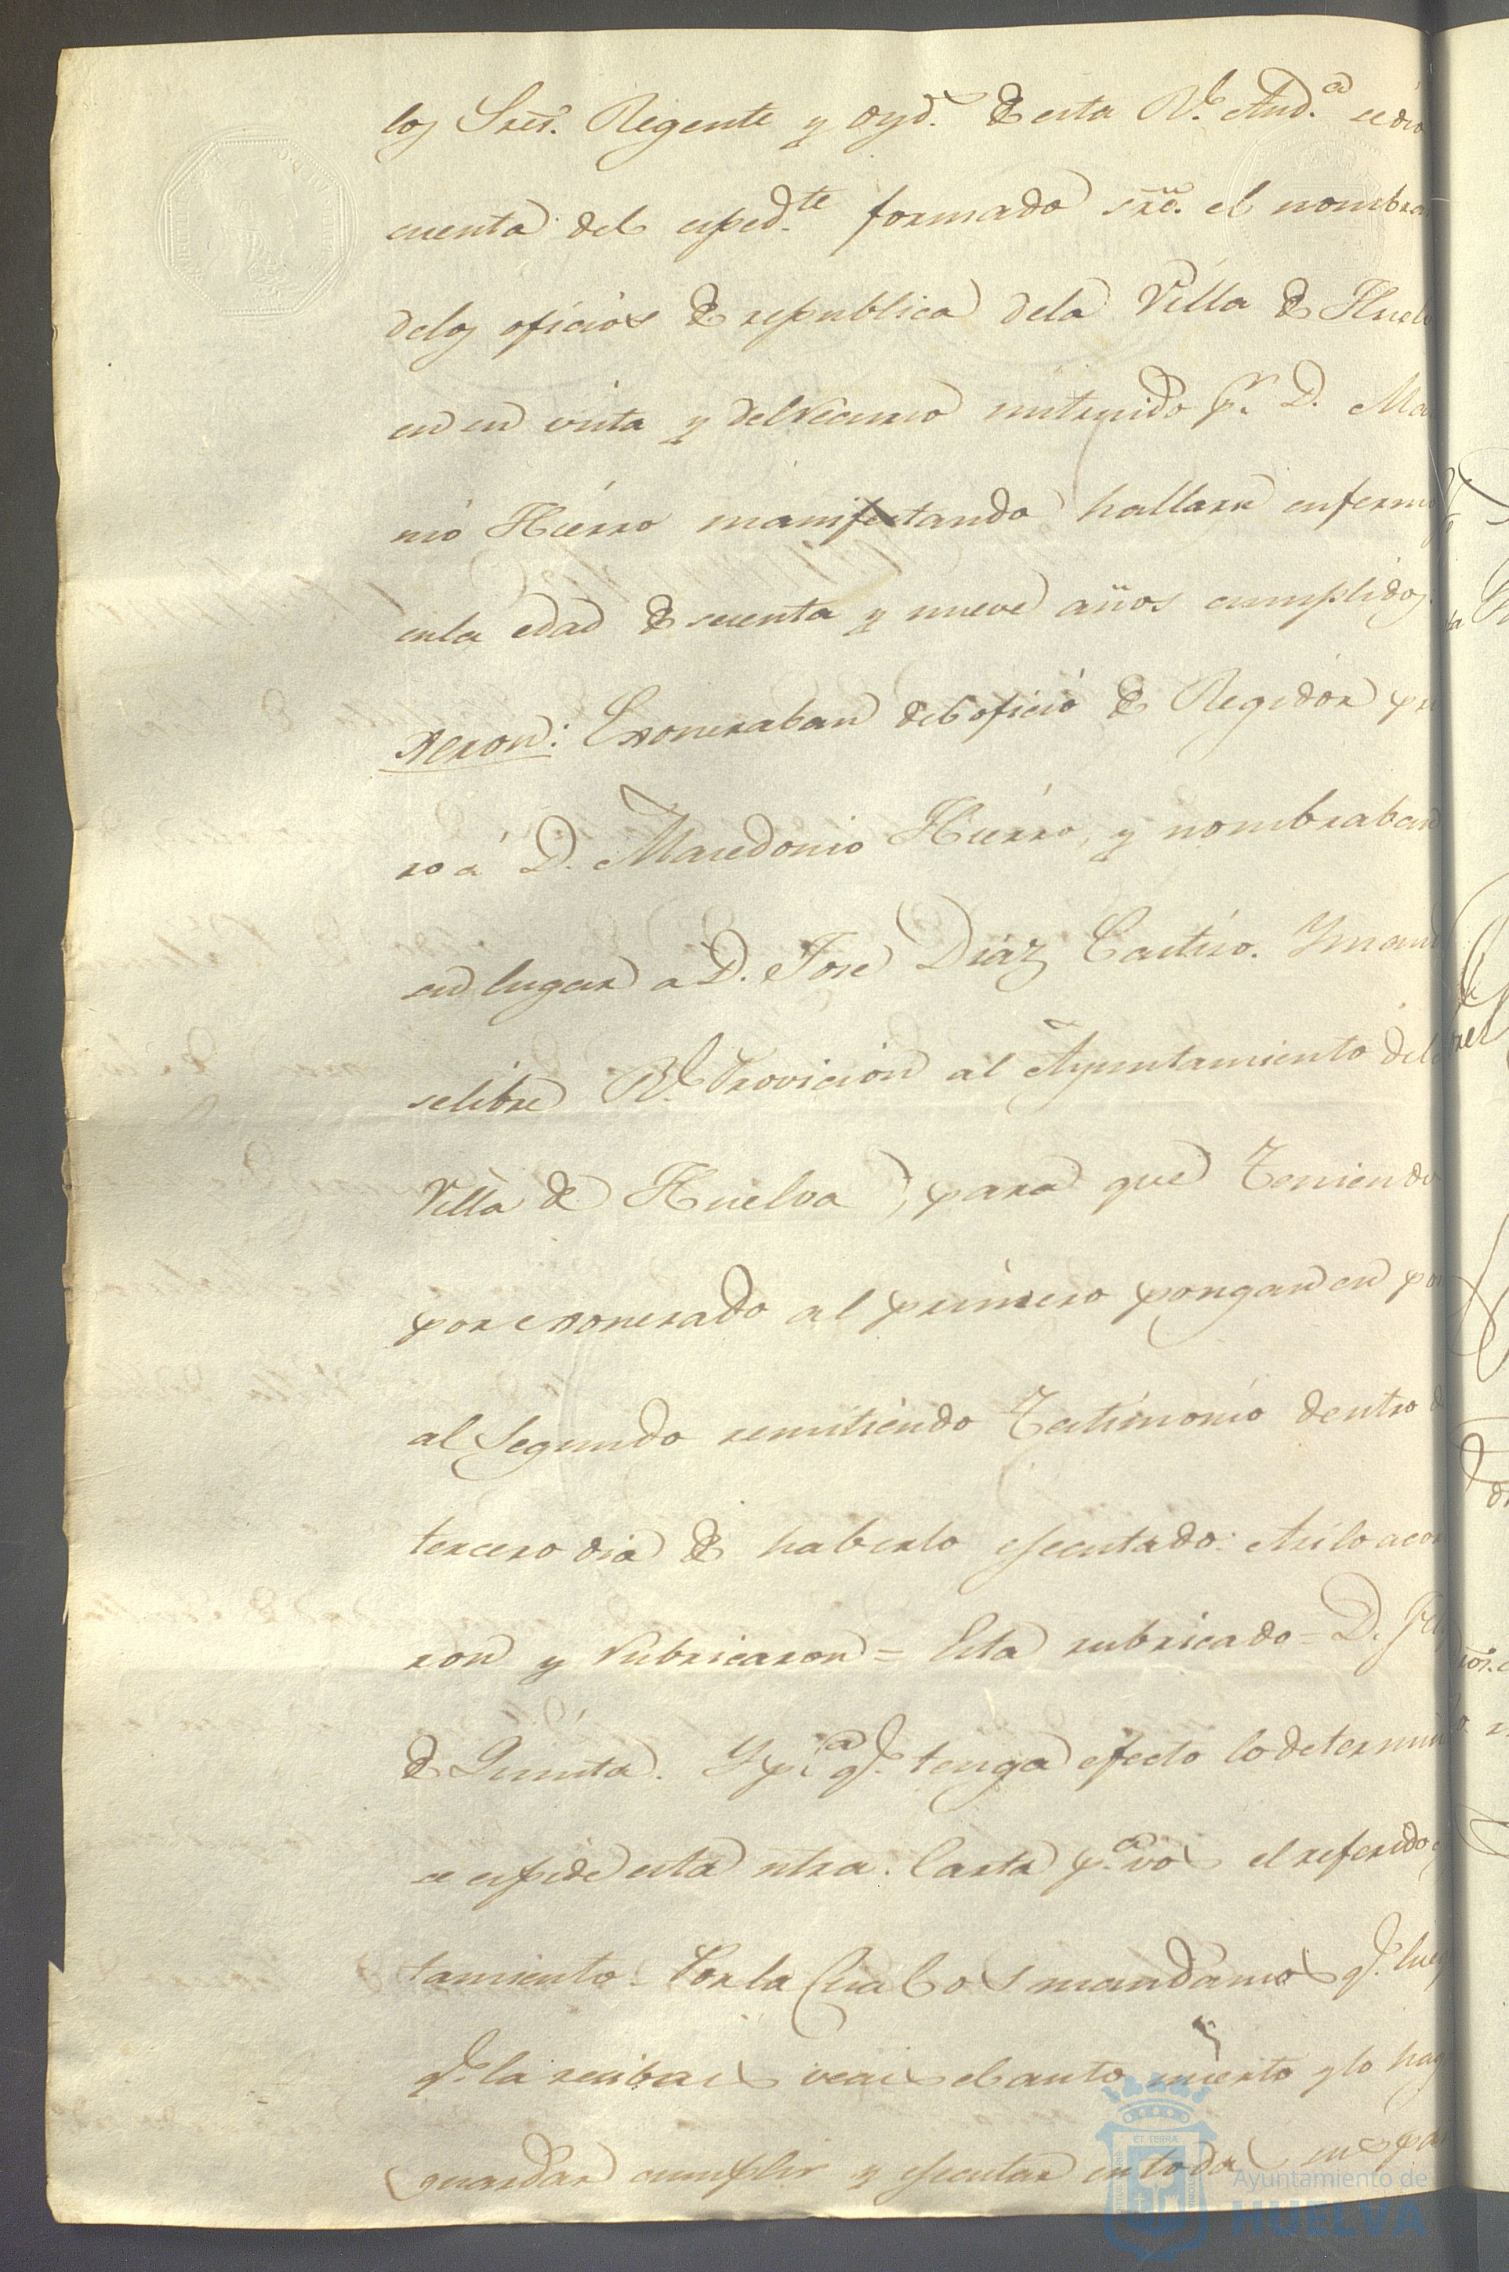 los Sres. Regente y oyd.s de esta Rl. Aud.a se dio
cuenta del exped.te formado sre. el nombra
delos oficios de republica dela Villa de Huelv
en su vista y del recurso instruido pr. D. Ma
nio Hierro manifestando hallarse enfermo
en la edad de sesenta y nueve años cumplidos
Dixeron: Exoneraban del oficio de Regidor pri
ro á D. Macedonio Hierro, y nombraban
su lugar a D. Jose Diaz Castiro. Y man
se libre Rl. Provicion al Ayuntamiento dela
Villa de Huelva, para que teniendo
por exonerado al primero pongan en po
al Segundo remitiendo Testimonio dentro d
tercero dia de haberlo ejecutado: Asi lo acor
ron y rubricaron = Esta rubricado = D.
de Quinta. Y pa. q.e tenga efecto lo determin
se expide esta ntra. Carta p.a vos el referido
tamiento. Por la Cual os mandamos q.e lueg
q.e la recibais veais el auto inserto y lo hag
guardar cumplir y ejecutar en todas sus pa
ET TERRÆ
Ayuntamiento de
HUELVA